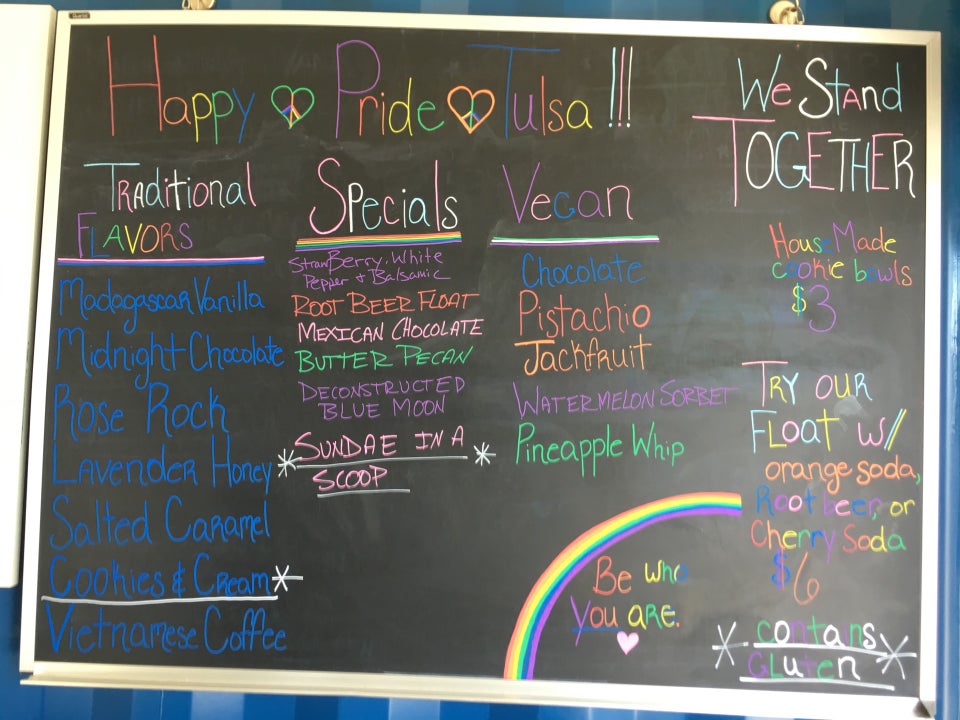 Happy Pride Tulsa !!!
We Stand
TOGETHER
Traditional
FLAVORS
Madagascar Vanilla
Midnight Chocolate
Rose Rock
Lavender Honey
Salted Caramel
Cookies & Cream*
Vietnamese Coffee
Specials
StrawBerry, White
Pepper & Balsamic
ROOT BEER FLOAT
MEXICAN CHOCOLATE
BUTTER PECAN
DECONSTRUCTED
BLUE MOON
*SUNDAE IN A *
SCOOP
Vegan
Chocolate
Pistachio
Jackfruit
WATERMELON SORBET
Pineapple Whip
House Made
cookie bowls
$3
TRY OUR
Float w/
orange soda,
Root beer, or
Cherry Soda
$6
Be who
You are.
* contains *
Gluten